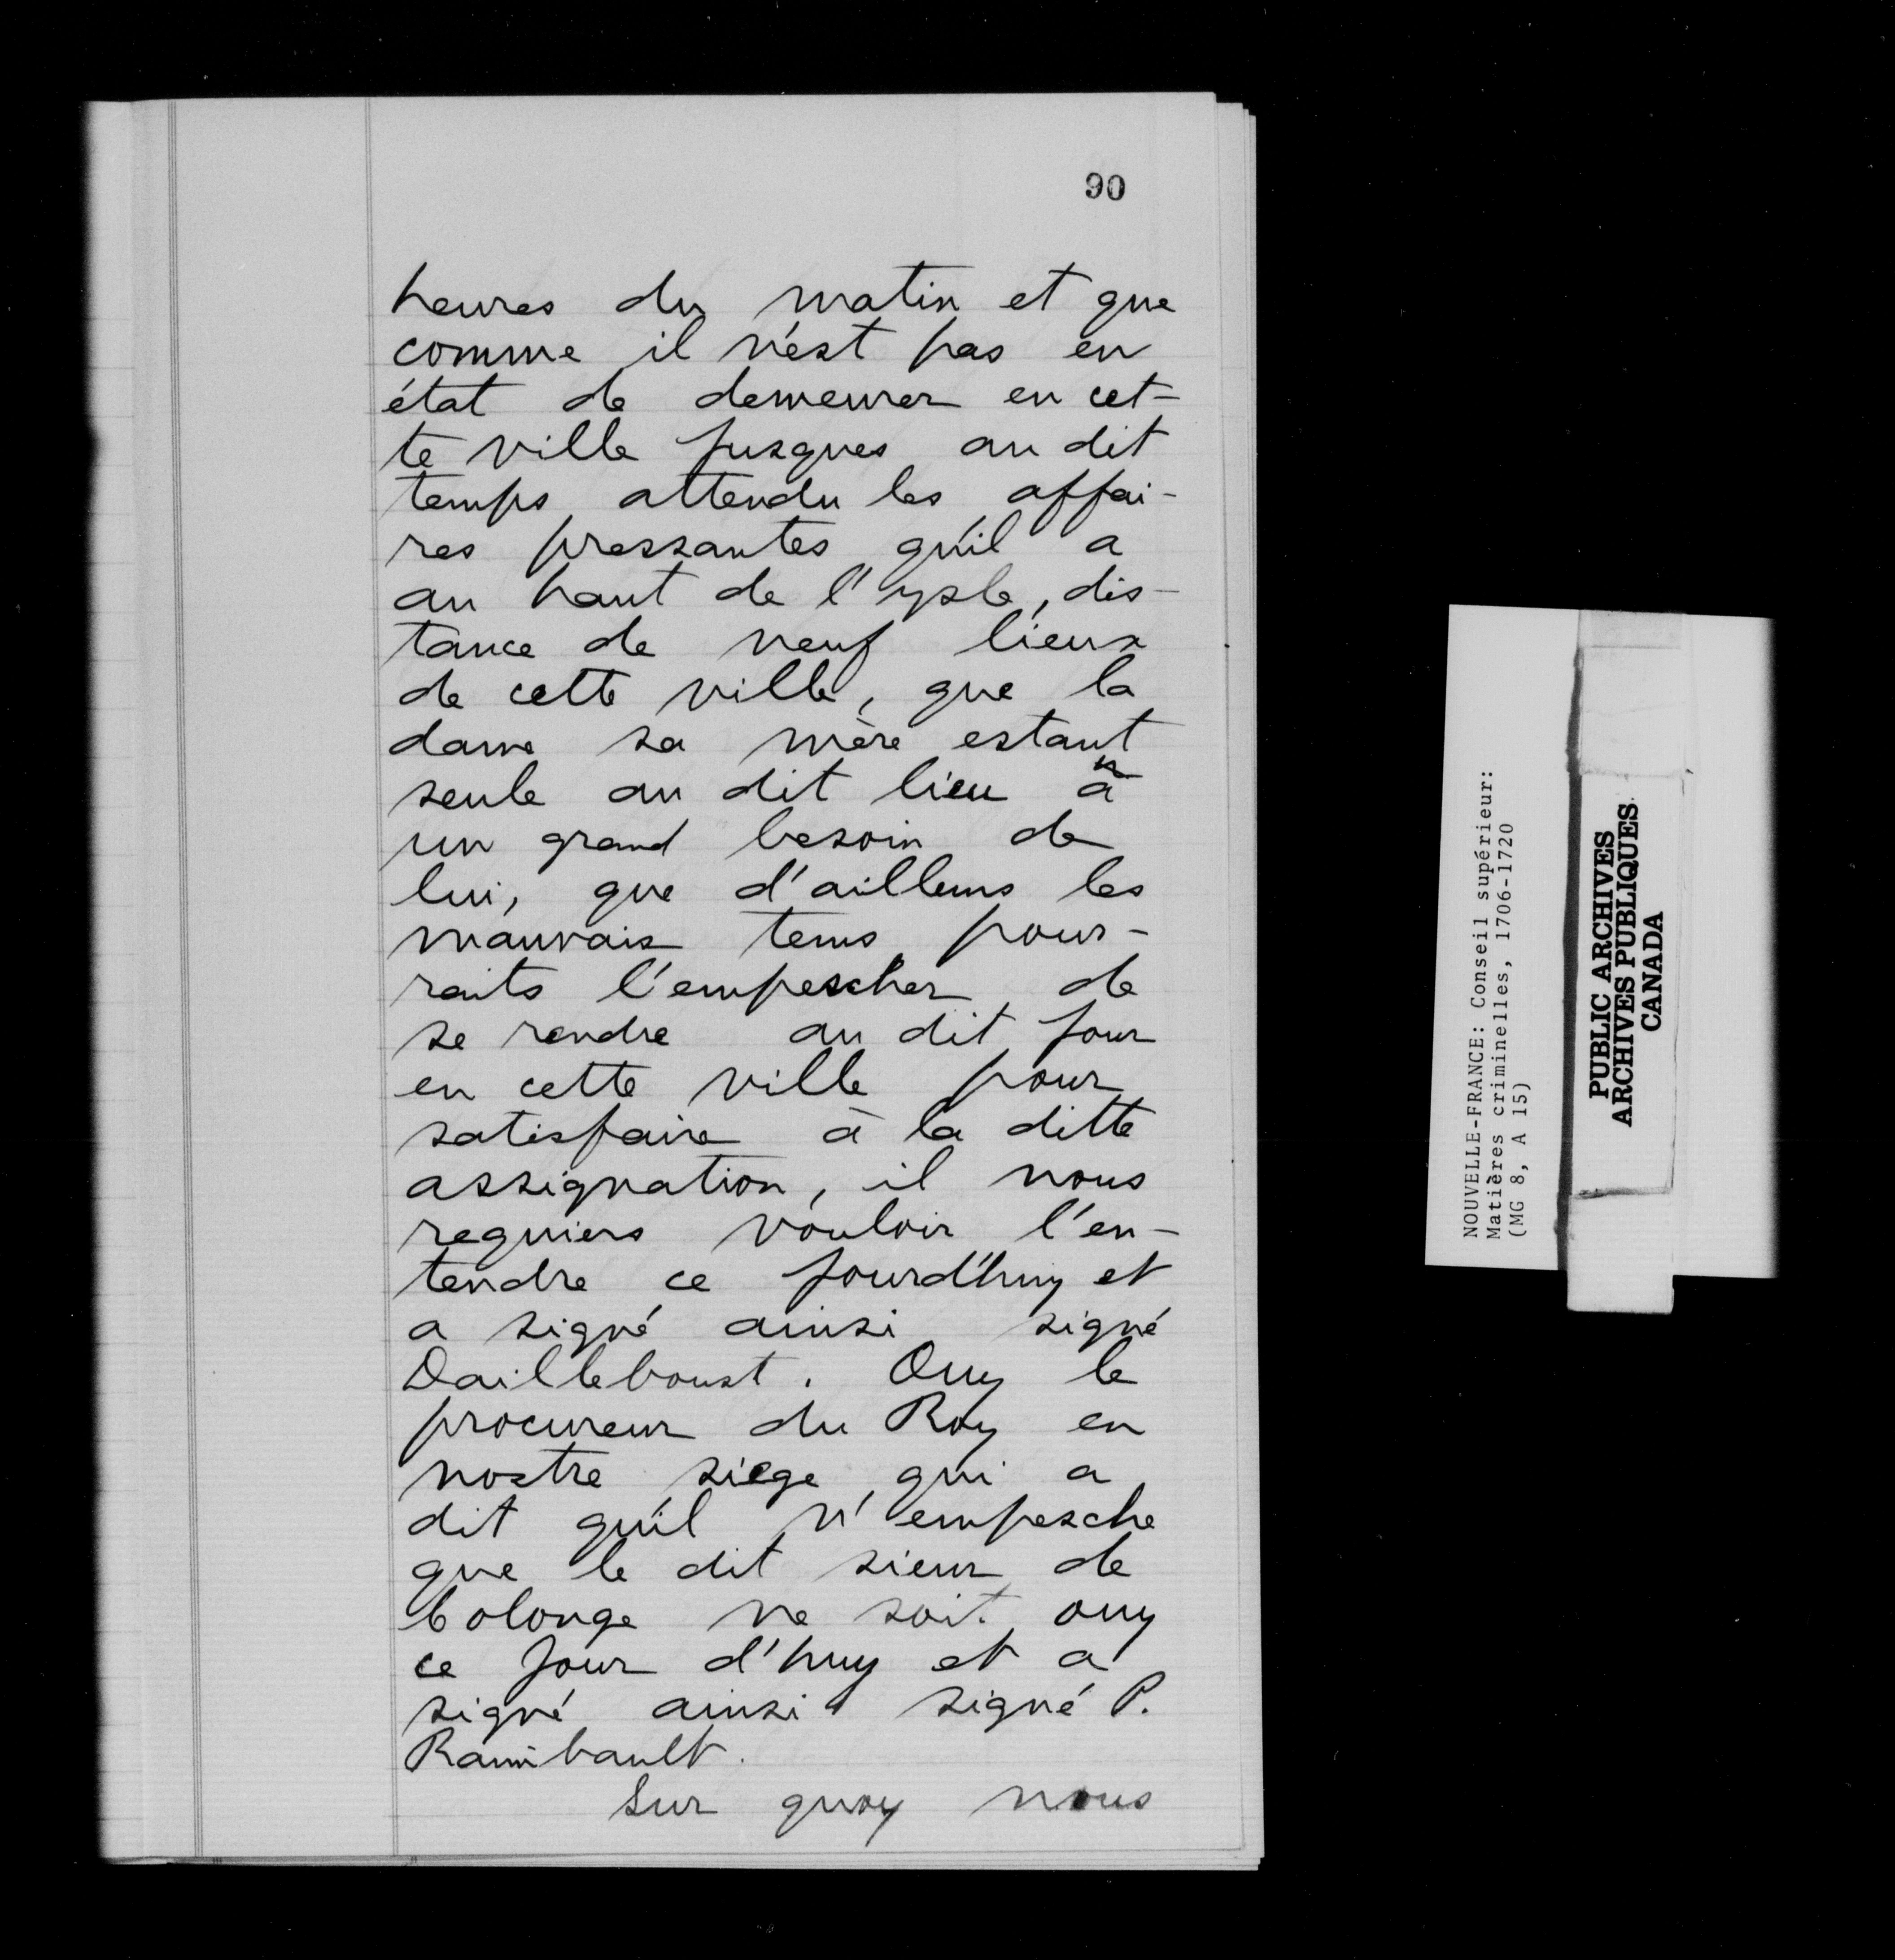 90
heures du matin et que
comme il n'est pas en
état de demeurer en cet-
te ville jusques au dit
temps attendu les affai-
res pressantes qu'il a
au haut de l'ysle, dis-
tance de neuf lieux
de cette ville, que la
dame sa mère estant
seule au dit lieu a
un grand besoin de
lui, que d'ailleurs les
mauvais tems pour-
raits l'empescher de
se rendre au dit jour
en cette ville pour
satisfaire à la ditte
assignation, il nous
requiers vouloir l'en-
tendre ce jourd'huy et
a signé ainsi signé
Dailleboust. Ouy le
procureur du Roy en
nostre siege qui a
dit qu'il n'empesche
que le dit sieur de
Colonge ne soit ouy
ce jour d'huy et a
signé ainsi signé P.
Raimbault.
Sur quoy nous
NOUVELLE-FRANCE: Conseil supérieur:
Matières criminelles, 1706-1720
(MG 8, A 15)
PUBLIC ARCHIVES
ARCHIVES PUBLIQUES
CANADA